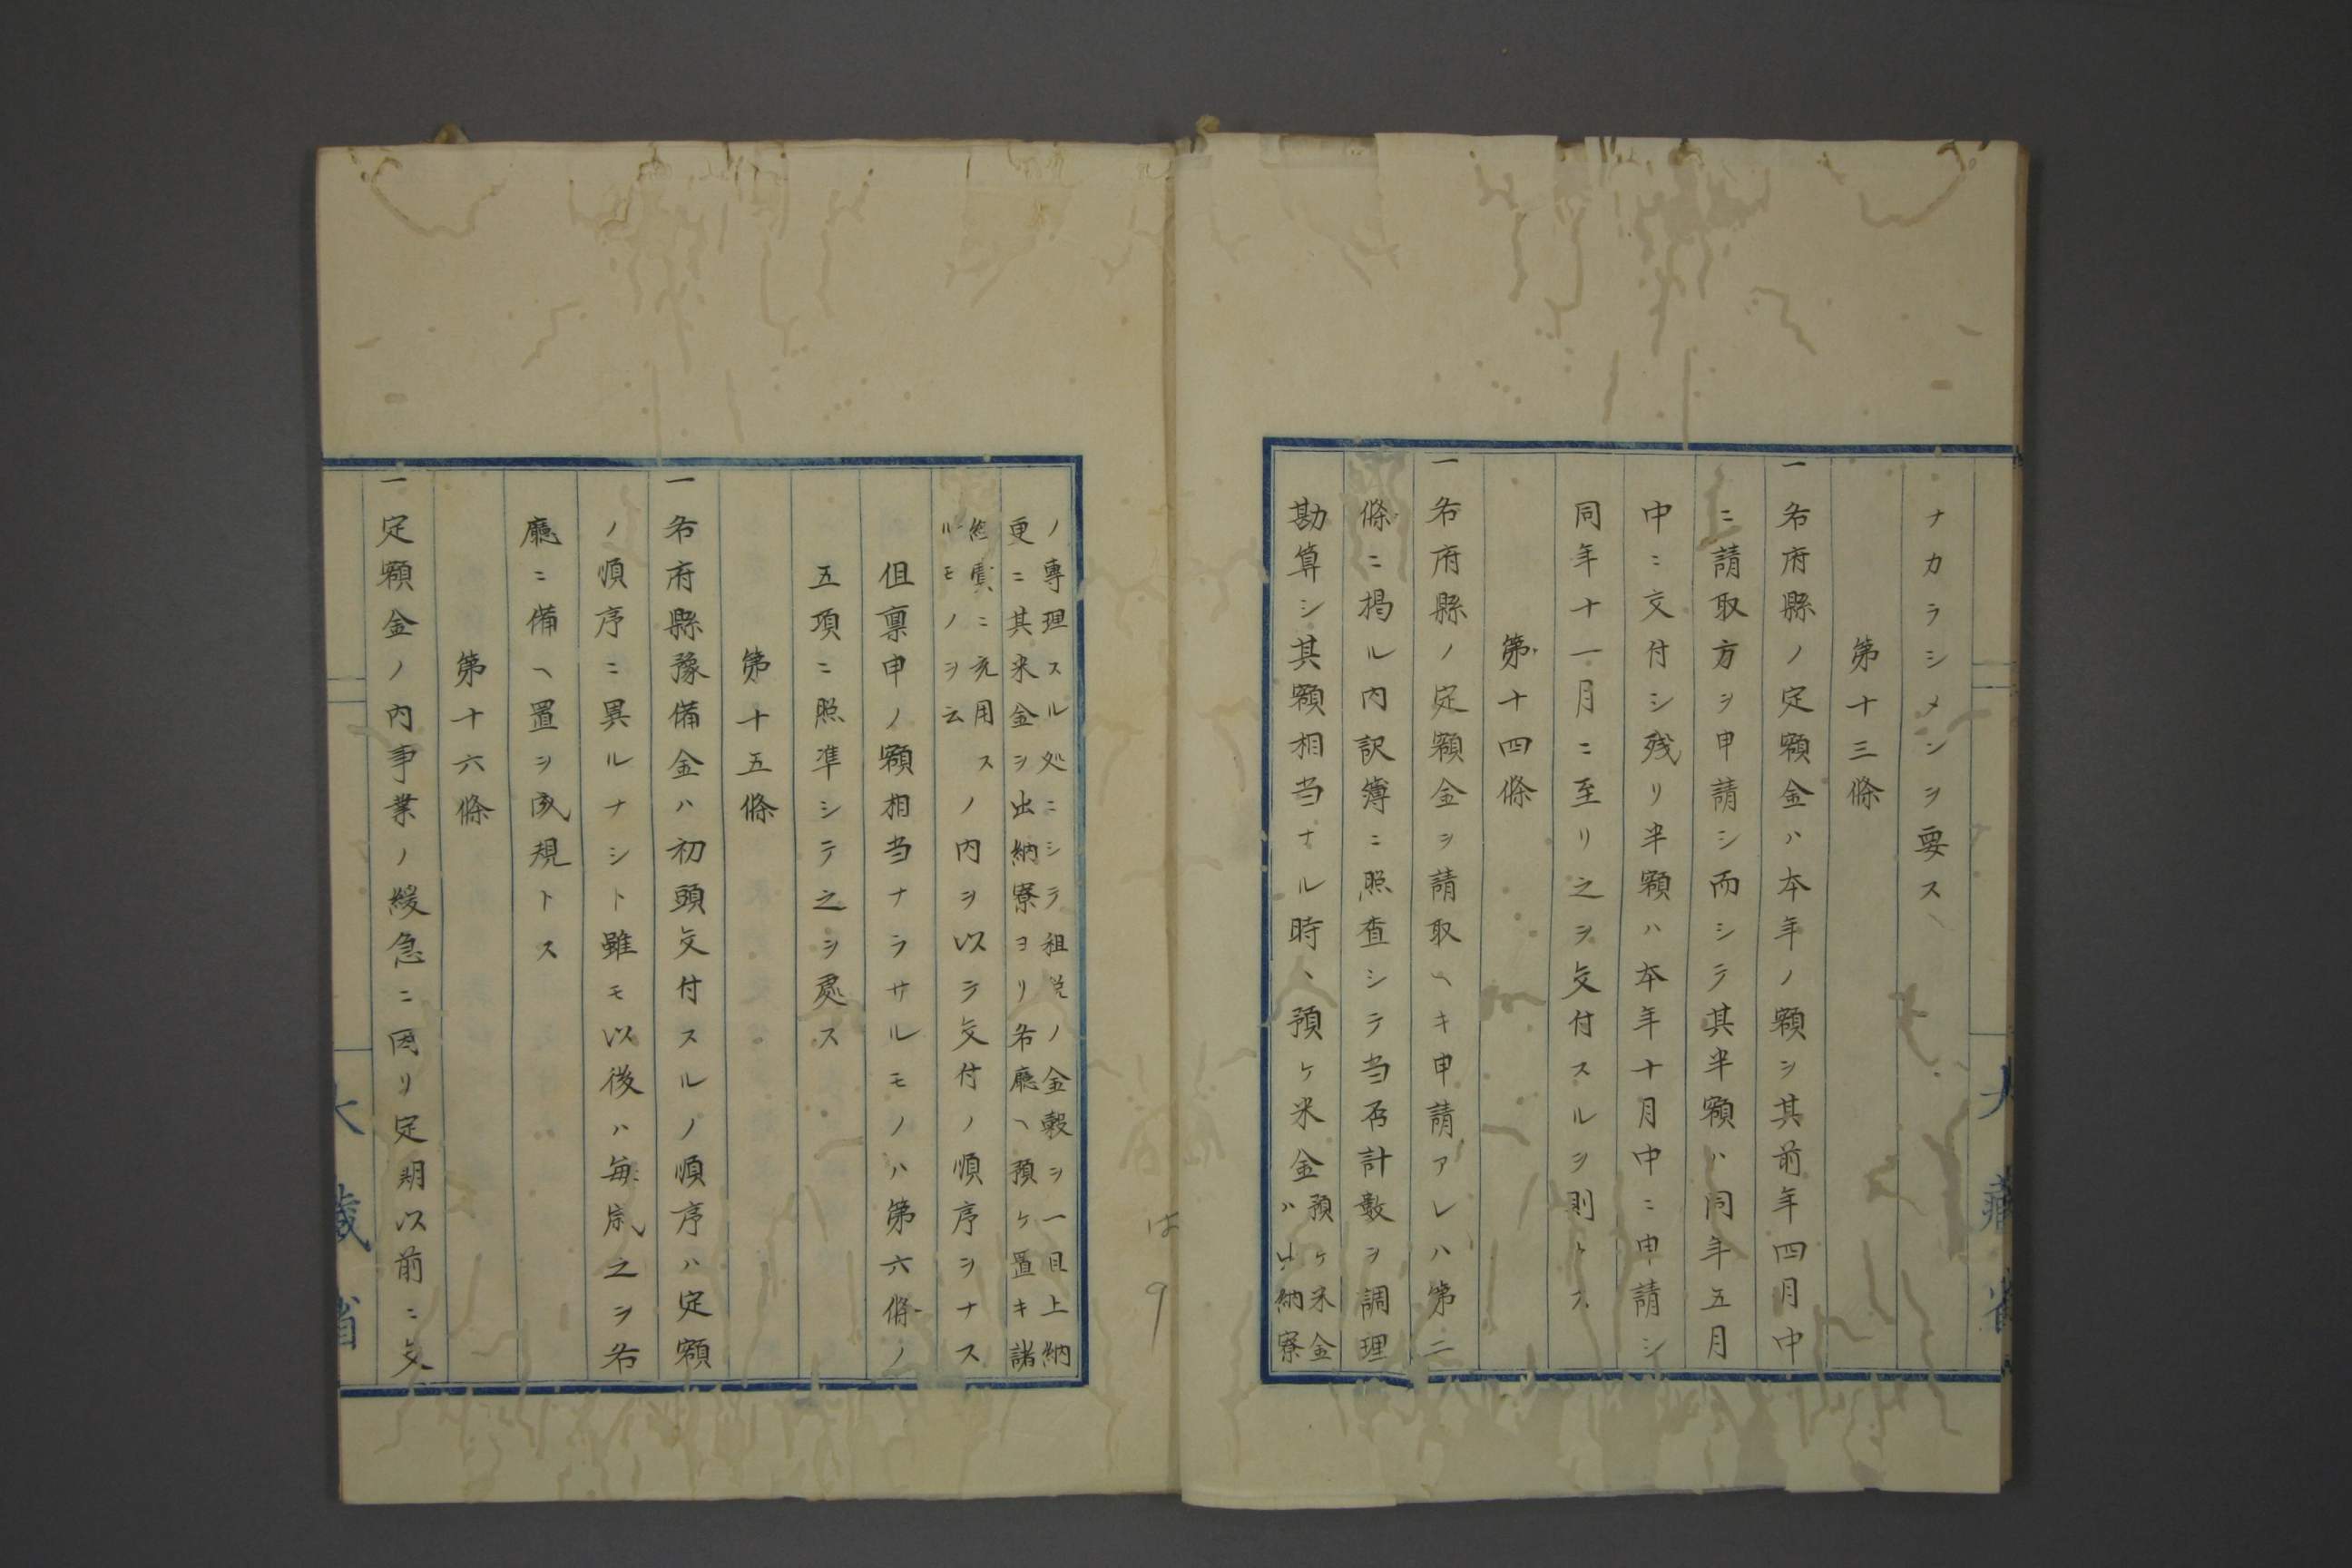 ナカラシメンヲ要ス
第十三條
一各府縣ノ定額金ハ本年ノ額ヲ其前年四月中
ニ請取方ヲ申請シ而シテ其半額ハ同年五月
中ニ交付シ残リ半額ハ本年十月中ニ申請シ
同年十一月ニ至リ之ヲ交付スルヲ則トス
第十四條
一各府縣ノ定額金ヲ請取ヘキ申請アレハ第二
條ニ掲ル内訳簿ニ照査シテ当否計數ヲ調理
勘算シ其額相当ナル時ハ預ケ米金預ケ米金ハ出納寮
ノ専理スル処ニシテ租税ノ金穀ヲ一旦上納
更ニ其米金ヲ出納寮ヨリ各廳ヘ預ケ置キ諸
経費ニ充用ス
ルモノヲ云ノ内ヲ以テ交付ノ順序ヲナス
但禀申ノ額相当ナラサルモノハ第六條ノ
五項ニ照準シテ之ヲ處ス
第十五條
一各府縣豫備金ハ初頭交付スルノ順序ハ定額
ノ順序ニ異ルナシト雖モ以後ハ毎歳之ヲ各
廳ニ備ヘ置ヲ成規トス
第十六條
一定額金ノ内事業ノ緩急ニ因リ定期以前ニ交
大藏省
大藏省